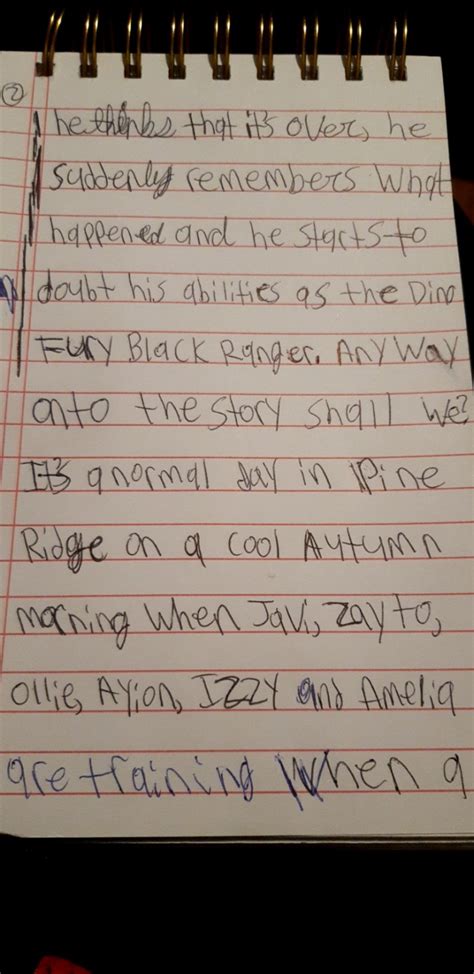 ②
he thinks that it's over, he
suddenly remembers what
happened and he starts to
doubt his abilities as the Dino
Fury Black Ranger. Any Way
onto the story shall we?
It's a normal day in Pine
Ridge on a cool Autumn
morning When Javi, Zayto,
Ollie, Ayion, IZZY and Amelia
are training When a